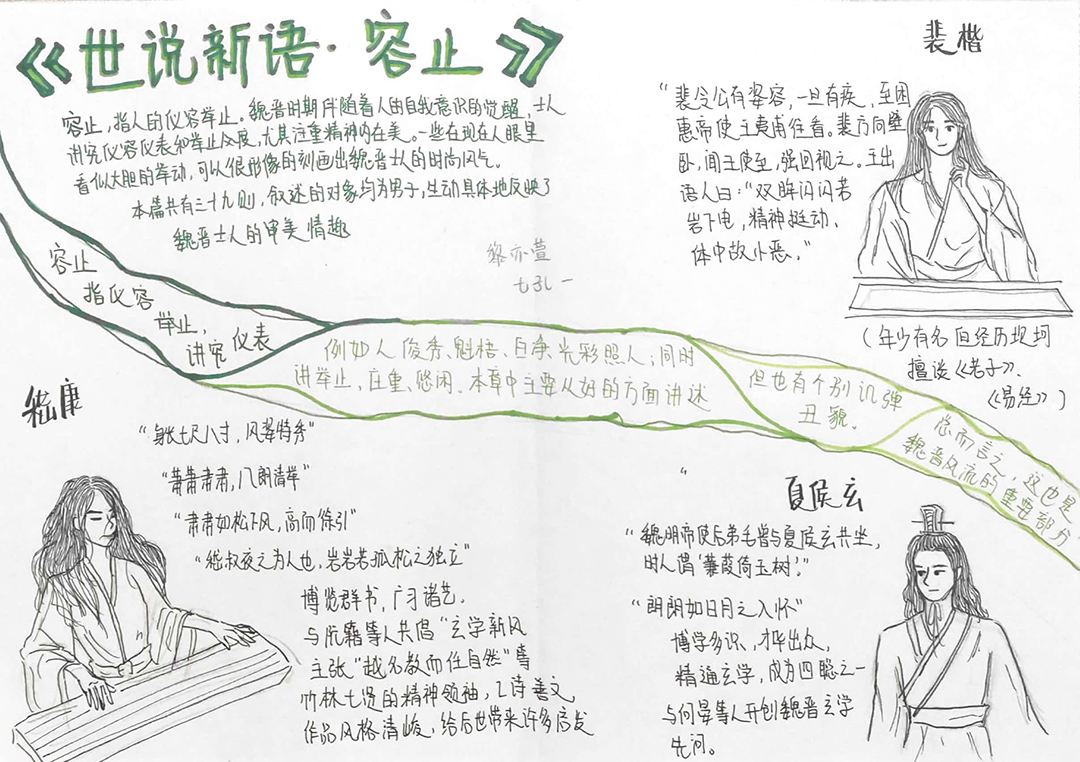 《世说新语·容止》
容止,指人的仪容举止。魏晋时期伴随着人的自我意识的觉醒,士人
讲究仪容仪表和举止风度,尤其注重精神内在美。一些在现在人眼里
看似大胆的举动,可以很形像的刻画出魏晋士人的时尚风气。
本篇共有三十九则,叙述的对象均为男子,生动具体地反映了
魏晋士人的审美情趣
黎亦萱
七3L一
裴楷
"裴令公有姿容,一旦有疾,至困
惠帝使王夷甫往看。裴方向壁
卧,闻王使至,强回视之。王出
语人曰:"双眸闪闪若
岩下电,精神挺动、
体中故小恶。"
(年少有名 但经历坎坷
擅谈《老子》、
《易经》)
容止
指仪容
举止,
讲究仪表
例如人俊秀、魁梧、白净、光彩照人;同时
讲举止,庄重、悠闲、本章中主要从好的方面讲述
但也有个别讥弹
丑貌。
总而言之,这也是
魏晋风流的重要部分
嵇康
"身长七尺八寸,风姿特秀"
"萧萧肃肃,爽朗清举"
"肃肃如松下风,高而徐引"
"嵇叔夜之为人也,岩岩若孤松之独立"
博览群书,广习诸艺.
与阮籍等人共倡"玄学新风
主张"越名教而任自然"等
竹林七贤的精神领袖,工诗善文,
作品风格清峻,给后世带来许多启发
"
夏侯玄
"魏明帝使后弟毛曾与夏侯玄共坐,
时人谓'蒹葭倚玉树'."
"朗朗如日月之入怀"
博学多识,才华出众,
精通玄学,成为四聪之一
与何晏等人开创魏晋玄学
先河。